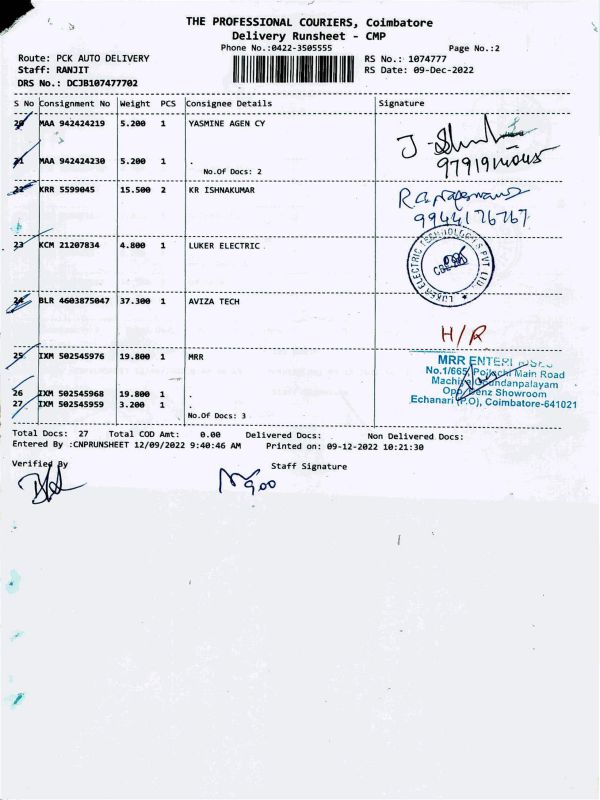 THE PROFESSIONAL COURIERS, Coimbatore
Delivery Runsheet - CMP
Phone No.:0422-3505555
Page No.:2
Route: PCK AUTO DELIVERY
RS No.: 1074777
Staff: RANJIT
RS Date: 09-Dec-2022
DRS No.: DCJB107477702
S No Consignment No Weight PCS Consignee Details Signature
20 MAA 942424219 5.200 1 YASMINE AGEN CY
21 MAA 942424230 5.200 1 .
No.Of Docs: 2
22 KRR 5599045 15.500 2 KR ISHNAKUMAR
9944176767
23 KCM 21207834 4.800 1 LUKER ELECTRIC
LUKER ELECTRIC TECHNOLOGY'S PVT LTD.
24 BLR 4603875047 37.300 1 AVIZA TECH
H/R
25 IXM 502545976 19.800 1 MRR
MRR ENTERPRISES
No.1/665, Pollachi Main Road
Opp. Benz Showroom
Echanari (P.O), Coimbatore-641021
26 IXM 502545968 19.800 1 .
27 IXM 502545959 3.200 1 .
No.Of Docs: 3
Total Docs: 27 Total COD Amt: 0.00 Delivered Docs: Non Delivered Docs:
Entered By :CNPRUNSHEET 12/09/2022 9:40:46 AM Printed on: 09-12-2022 10:21:30
Verified By
Staff Signature